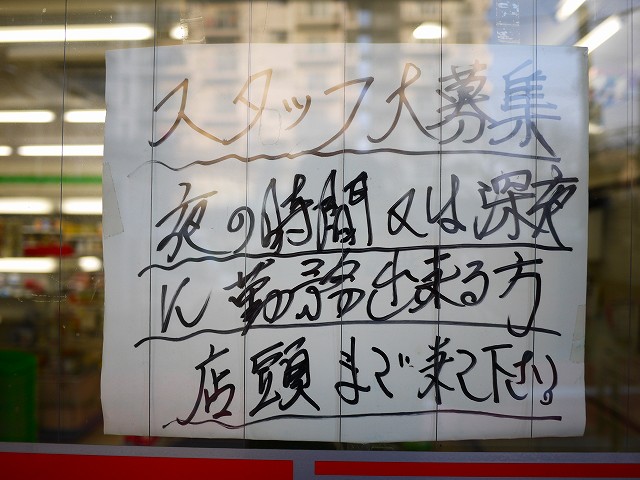 スタッフ大募集
夜の時間又は深夜
に勤務出来る方
店頭まで来て下さい。